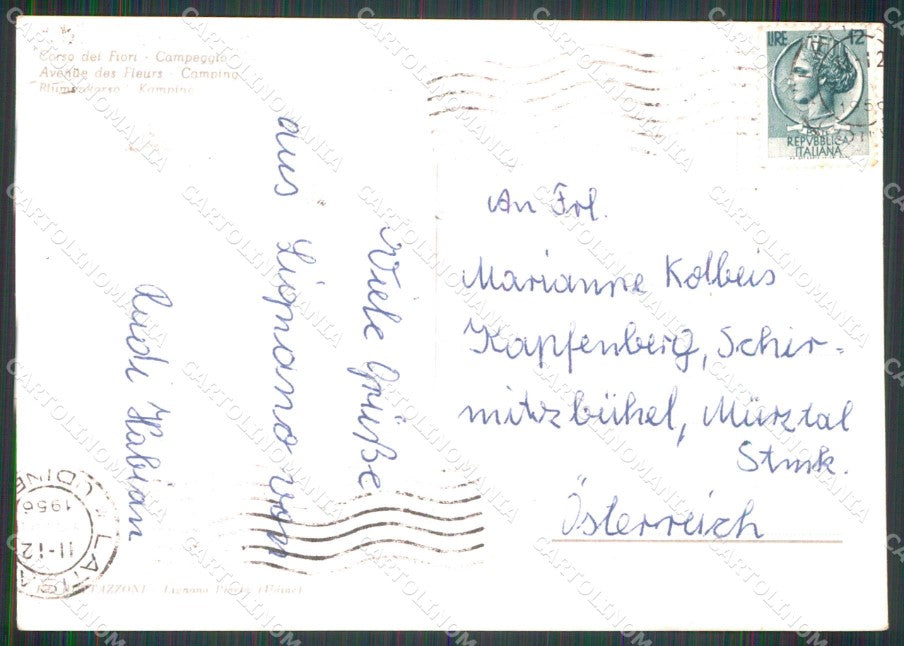 Corso dei Fiori - Campeggio
Avenue des Fleurs - Camping
Blumenkorso - Kamping
LIRE 12
REPVBBLICA
ITALIANA
Viele Grüße
aus Lignano von
Rudi Habian
An Frl.
Marianne Kolbeis
Kapfenberg, Schir-
mitzbühel, Mürztal
Stmk.
Österreich
UDINE
1956
11-12
Lignano Pineta (Udine)
CARTOLINOMANIA